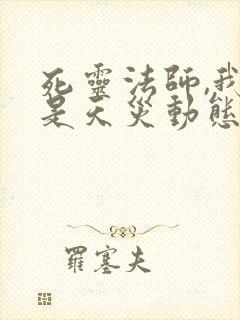 死靈法師,我
是天災動態
羅塞夫